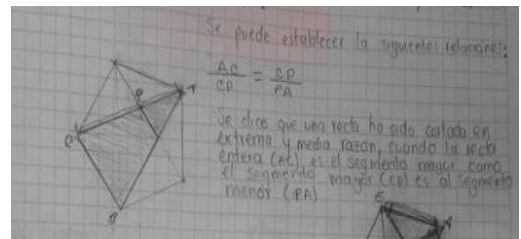 Se puede establecer la siguientes relaciones:
AC/CP = CP/PA
Se dice que una recta ha sido cortada en
extrema y media razón, cuando la recta
entera (AC), es el segmento mayor como
el segmento mayor (CP) es al segmento
menor (PA)
P
A
C
E
A